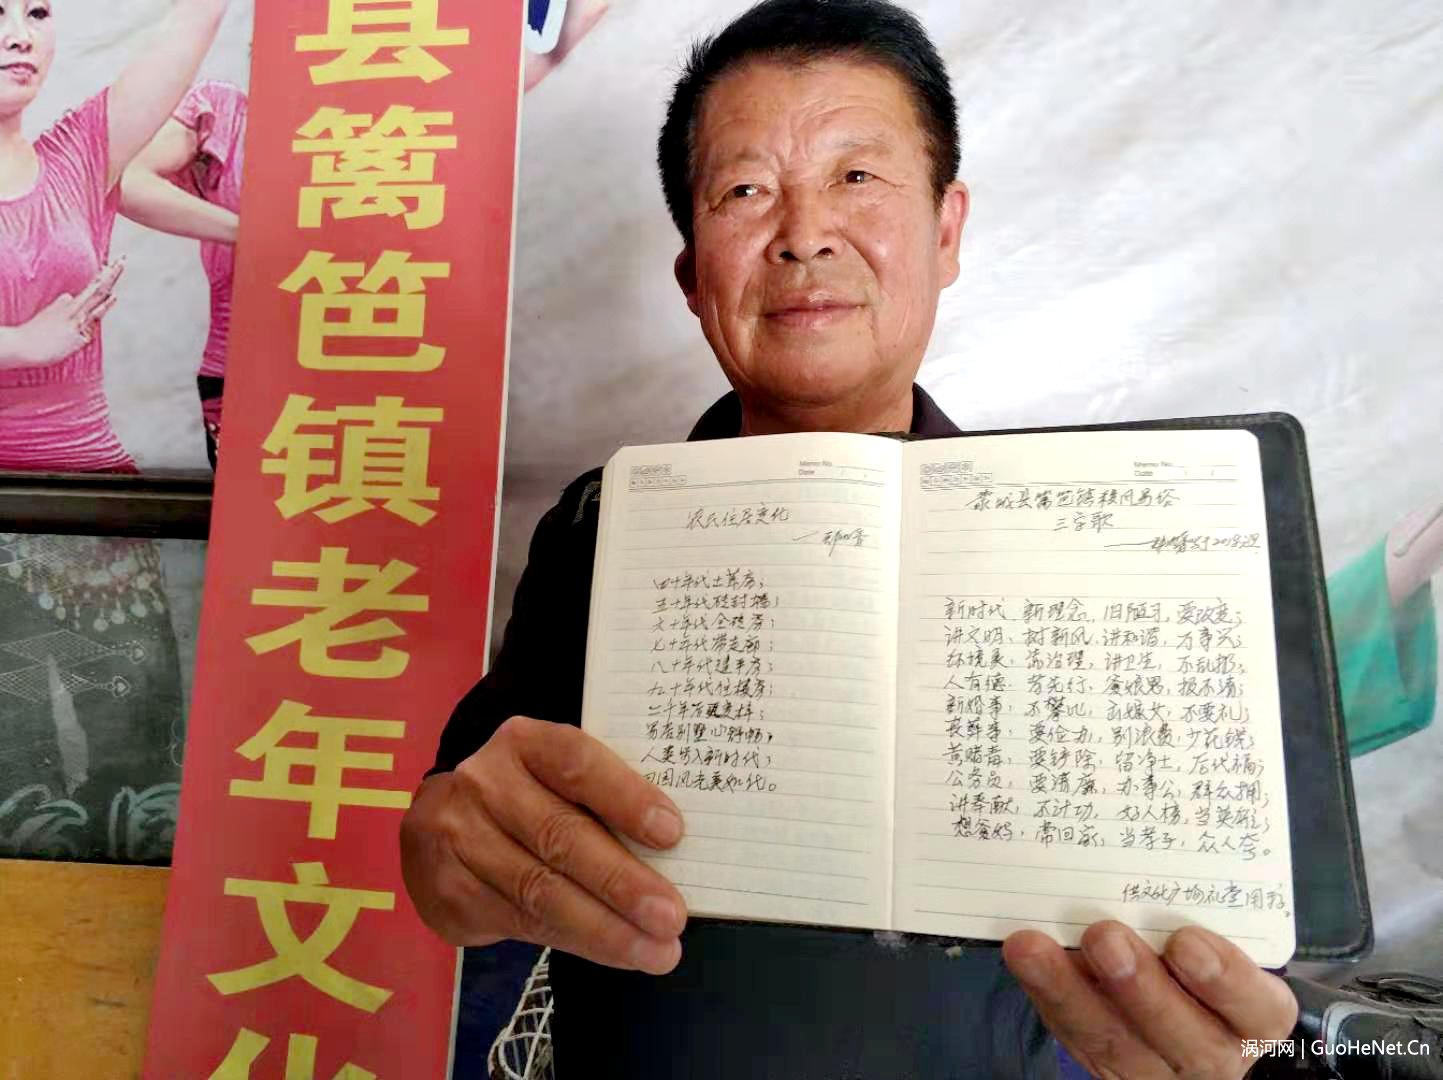 县篱笆镇老年文化
Memo No.
Date
农民住居变化
四十年代土草房；
五十年代砖封檐；
六十年代全砖房；
七十年代带走廊；
八十年代建平房；
九十年代住楼房；
二千年后更变样；
宽居别墅心舒畅；
人类步入新时代；
田园风光美如化。
Memo No.
Date
蒙城县篱笆镇移风易俗
三字歌
新时代，新理念，旧陋习，要改变；
讲文明，树新风，讲和谐，万事兴；
环境美，常治理，讲卫生，不乱扔；
人有德，孝先行，爹娘恩，报不清；
新婚事，不攀比，嫁娘女，不要礼；
丧葬事，要俭办，别浪费，少花钱；
黄赌毒，要铲除，留净土，后代福；
公务员，要清廉，办事公，群众拥；
讲奉献，不计功，好人榜，当英雄；
想爹妈，常回家，当孝子，众人夸。
供文化广场礼堂用
涡河网 | GuoHeNet.Cn